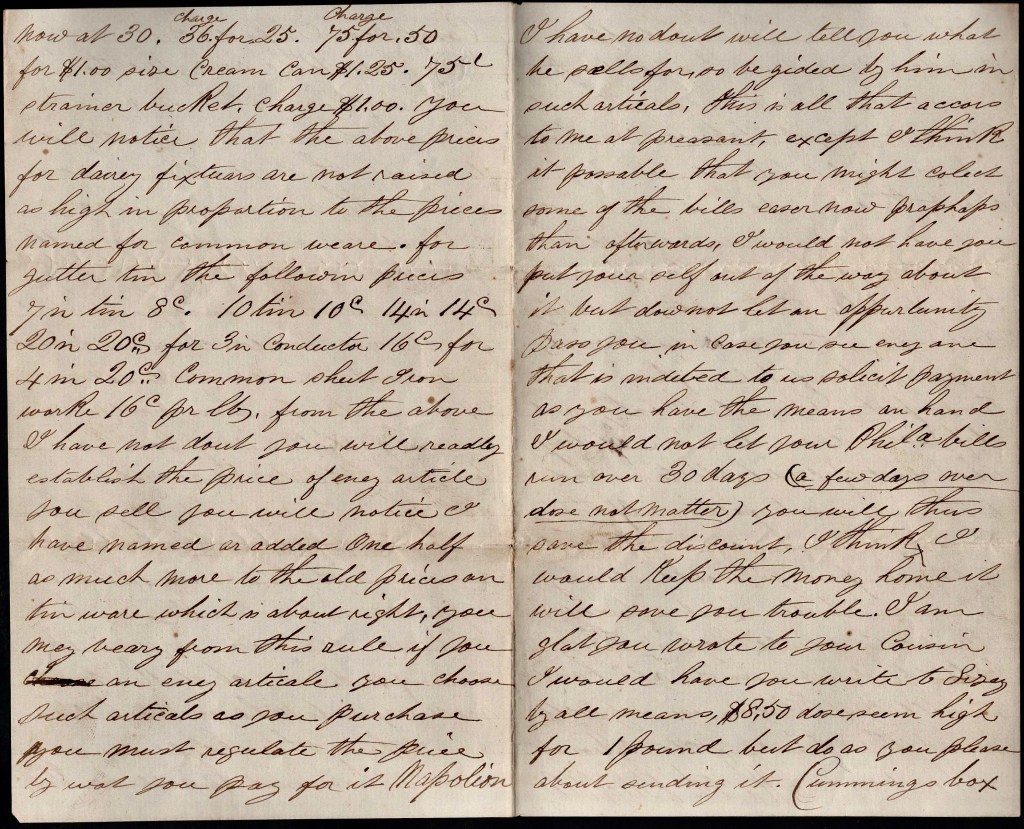 charge charge
now at 30. 36. for .25. 75 for .50
for $1.00 size Cream Can $1.25. 75c
strainer bucket. charge $1.00. you
will notice that the above prices
for dairey fixtuars are not raised
as high in propartion to the prices
named for common weare. for
gutter tin the followin prices
7 in tin 8c. 10 tin 10c 14 in 14c
20 in 20c for 3 in Conductor 16c for
4 in 20c. Common sheet Iron
worke 16c pr lb, from the above
I have not dout you will readly
establish the price of eney article
you sell you will notice I
have named or added One half
as much more to the old prices on
tin ware which is about right, you
mey veary from this rule if you
an eney articale you choose
Such articals as you purchase
you must regulate the price
by wat you pay for it Napolion
I have no dout will tell you what
he sells for, so be gided by him in
such articals, this is all that accors
to me at preasant, except I think
it possable that you might colect
some of the bills easer now praphaps
than afterwards, I would not have you
put your self out of the way about
it but dow not let an oppurtunity
pass you in case you see eney one
that is indeted to us solicit payment
as you have the means on hand
I would not let your Phila bills
run over 30 days (a few days over
dose not matter) you will thus
save the discount, I think, I
would Keep the money home it
will save you trouble. I am
glat you wrote to your Cousin
I would have you write to Sizey
by all means, $8.50 dose seem high
for 1 pound but do as you please
about sending it. Cummings box